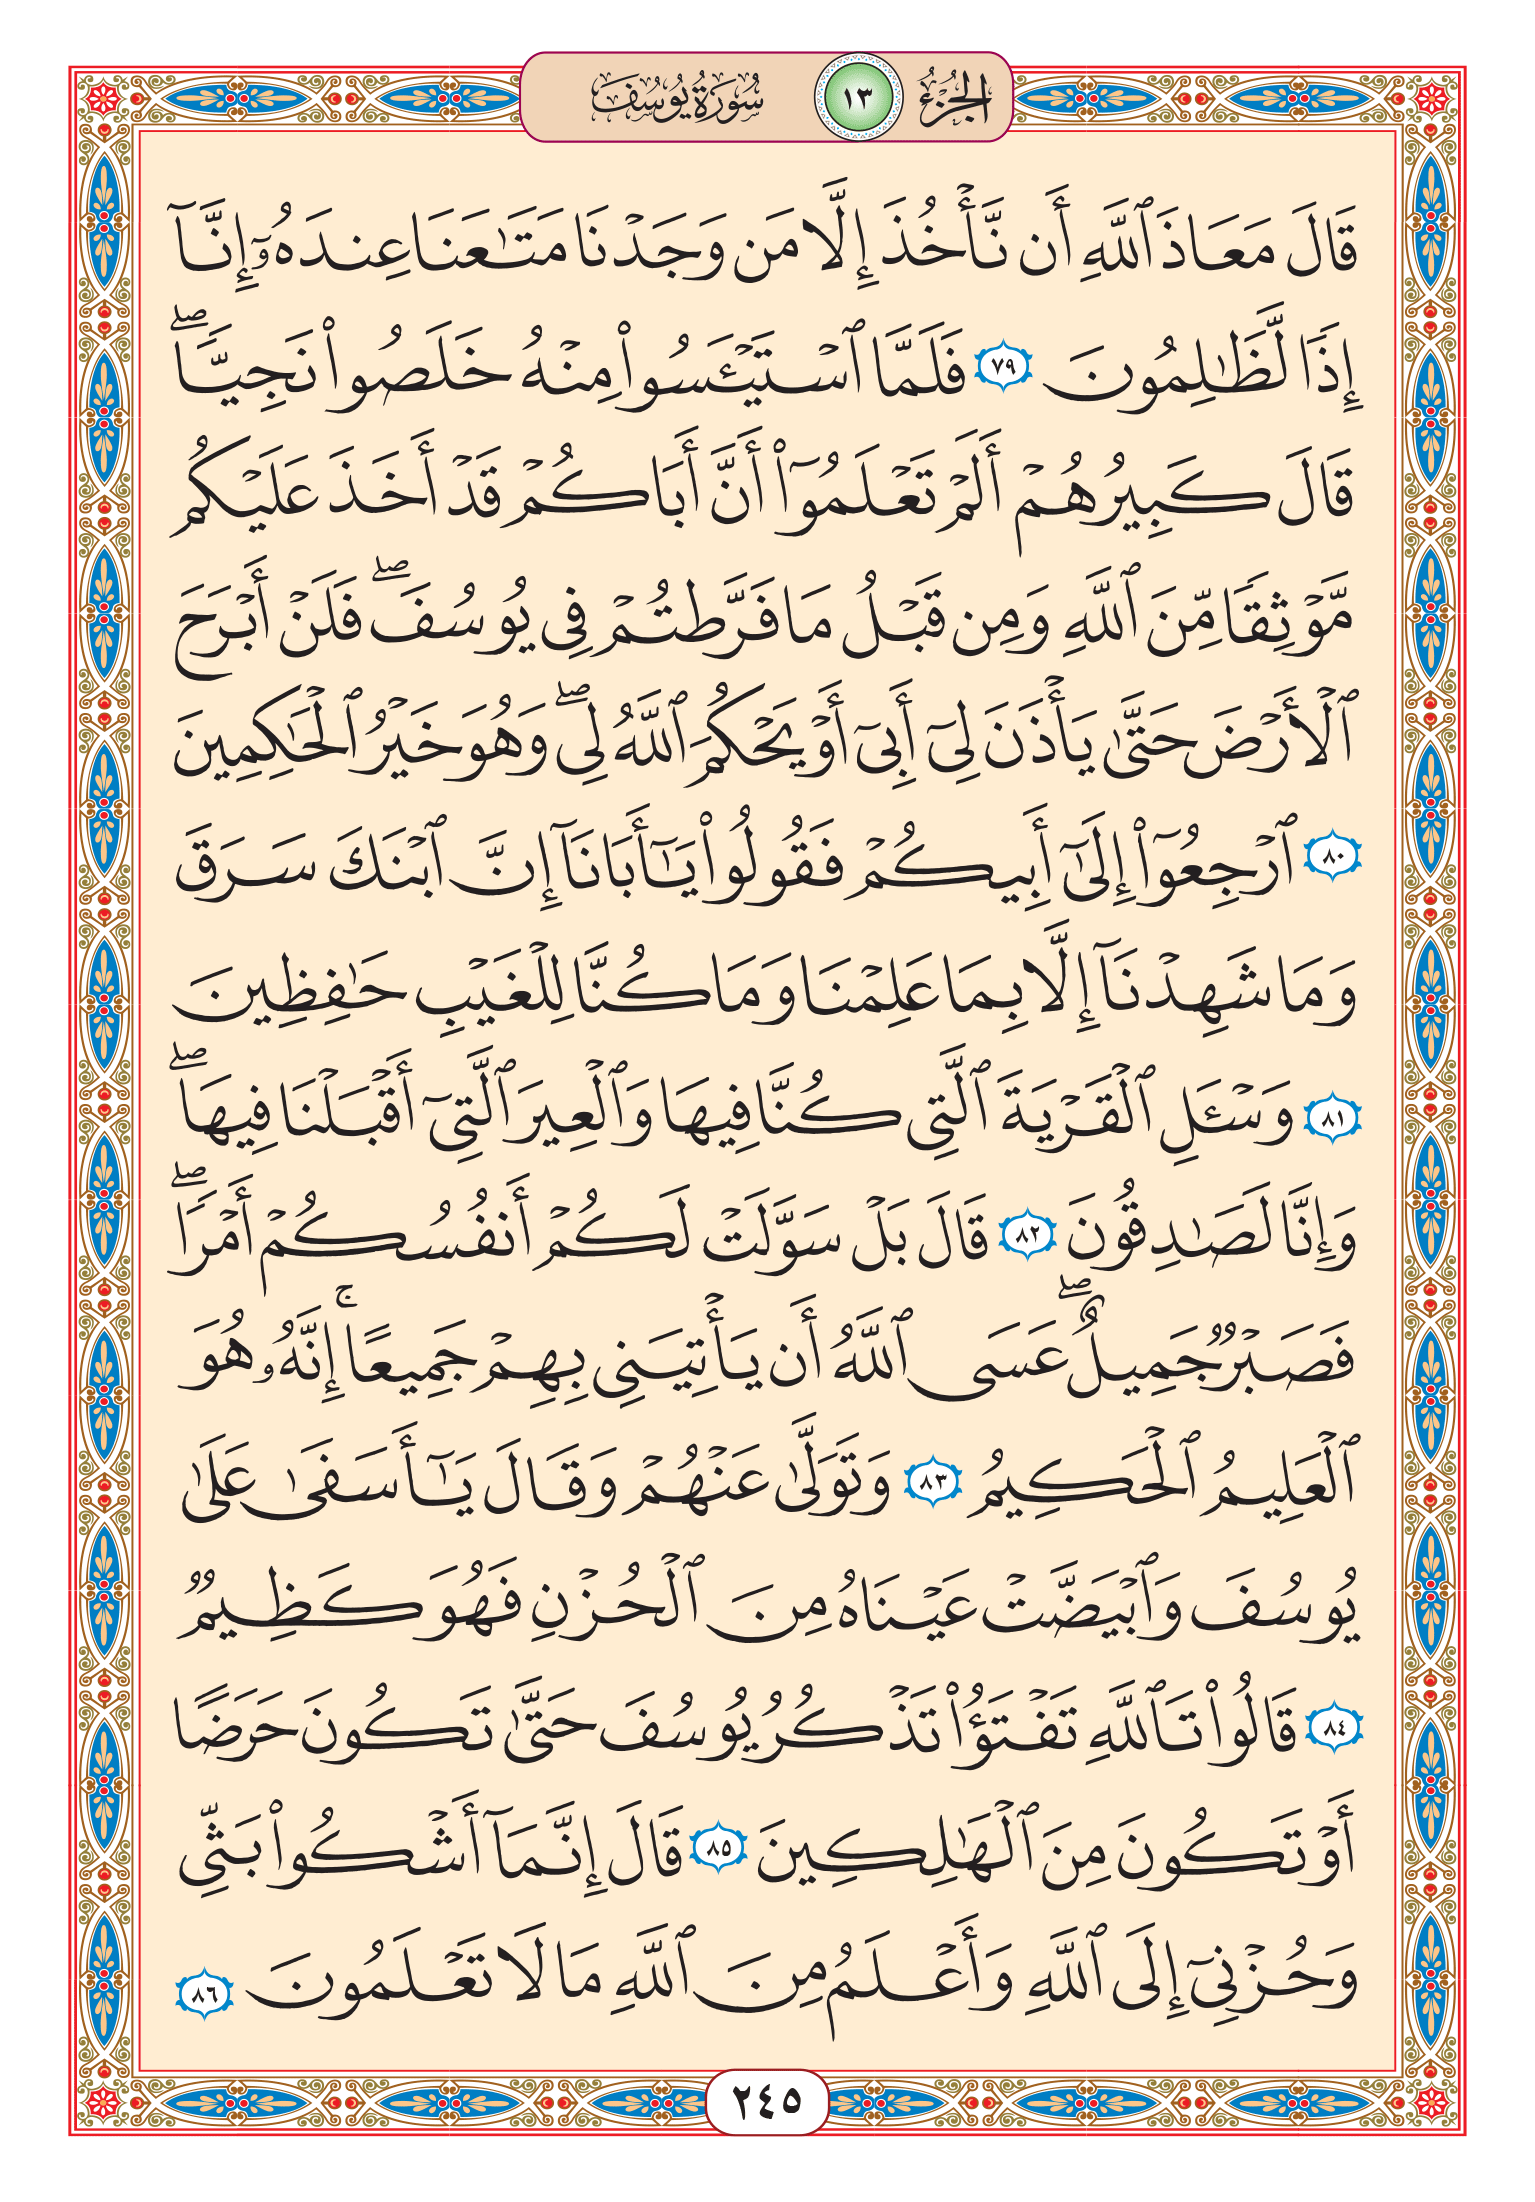 الجزء ١٣ سورة يوسف
قَالَ مَعَاذَ ٱللَّهِ أَن نَّأْخُذَ إِلَّا مَن وَجَدْنَا مَتَٰعَنَا عِندَهُۥٓ إِنَّآ
إِذًا لَّظَٰلِمُونَ ٧٩ فَلَمَّا ٱسْتَيْـَٔسُوا۟ مِنْهُ خَلَصُوا۟ نَجِيًّاۖ
قَالَ كَبِيرُهُمْ أَلَمْ تَعْلَمُوٓا۟ أَنَّ أَبَاكُمْ قَدْ أَخَذَ عَلَيْكُم
مَّوْثِقًا مِّنَ ٱللَّهِ وَمِن قَبْلُ مَا فَرَّطتُمْ فِى يُوسُفَۖ فَلَنْ أَبْرَحَ
ٱلْأَرْضَ حَتَّىٰ يَأْذَنَ لِىٓ أَبِىٓ أَوْ يَحْكُمَ ٱللَّهُ لِىۖ وَهُوَ خَيْرُ ٱلْحَٰكِمِينَ
٨٠ ٱرْجِعُوٓا۟ إِلَىٰٓ أَبِيكُمْ فَقُولُوا۟ يَٰٓأَبَانَآ إِنَّ ٱبْنَكَ سَرَقَ
وَمَا شَهِدْنَآ إِلَّا بِمَا عَلِمْنَا وَمَا كُنَّا لِلْغَيْبِ حَٰفِظِينَ
٨١ وَسْـَٔلِ ٱلْقَرْيَةَ ٱلَّتِى كُنَّا فِيهَا وَٱلْعِيرَ ٱلَّتِىٓ أَقْبَلْنَا فِيهَاۖ
وَإِنَّا لَصَٰدِقُونَ ٨٢ قَالَ بَلْ سَوَّلَتْ لَكُمْ أَنفُسُكُمْ أَمْرًاۖ
فَصَبْرٌ جَمِيلٌۖ عَسَى ٱللَّهُ أَن يَأْتِيَنِى بِهِمْ جَمِيعًاۚ إِنَّهُۥ هُوَ
ٱلْعَلِيمُ ٱلْحَكِيمُ ٨٣ وَتَوَلَّىٰ عَنْهُمْ وَقَالَ يَٰٓأَسَفَىٰ عَلَىٰ
يُوسُفَ وَٱبْيَضَّتْ عَيْنَاهُ مِنَ ٱلْحُزْنِ فَهُوَ كَظِيمٌ
٨٤ قَالُوا۟ تَٱللَّهِ تَفْتَؤُا۟ تَذْكُرُ يُوسُفَ حَتَّىٰ تَكُونَ حَرَضًا
أَوْ تَكُونَ مِنَ ٱلْهَٰلِكِينَ ٨٥ قَالَ إِنَّمَآ أَشْكُوا۟ بَثِّى
وَحُزْنِىٓ إِلَى ٱللَّهِ وَأَعْلَمُ مِنَ ٱللَّهِ مَا لَا تَعْلَمُونَ ٨٦
٢٤٥